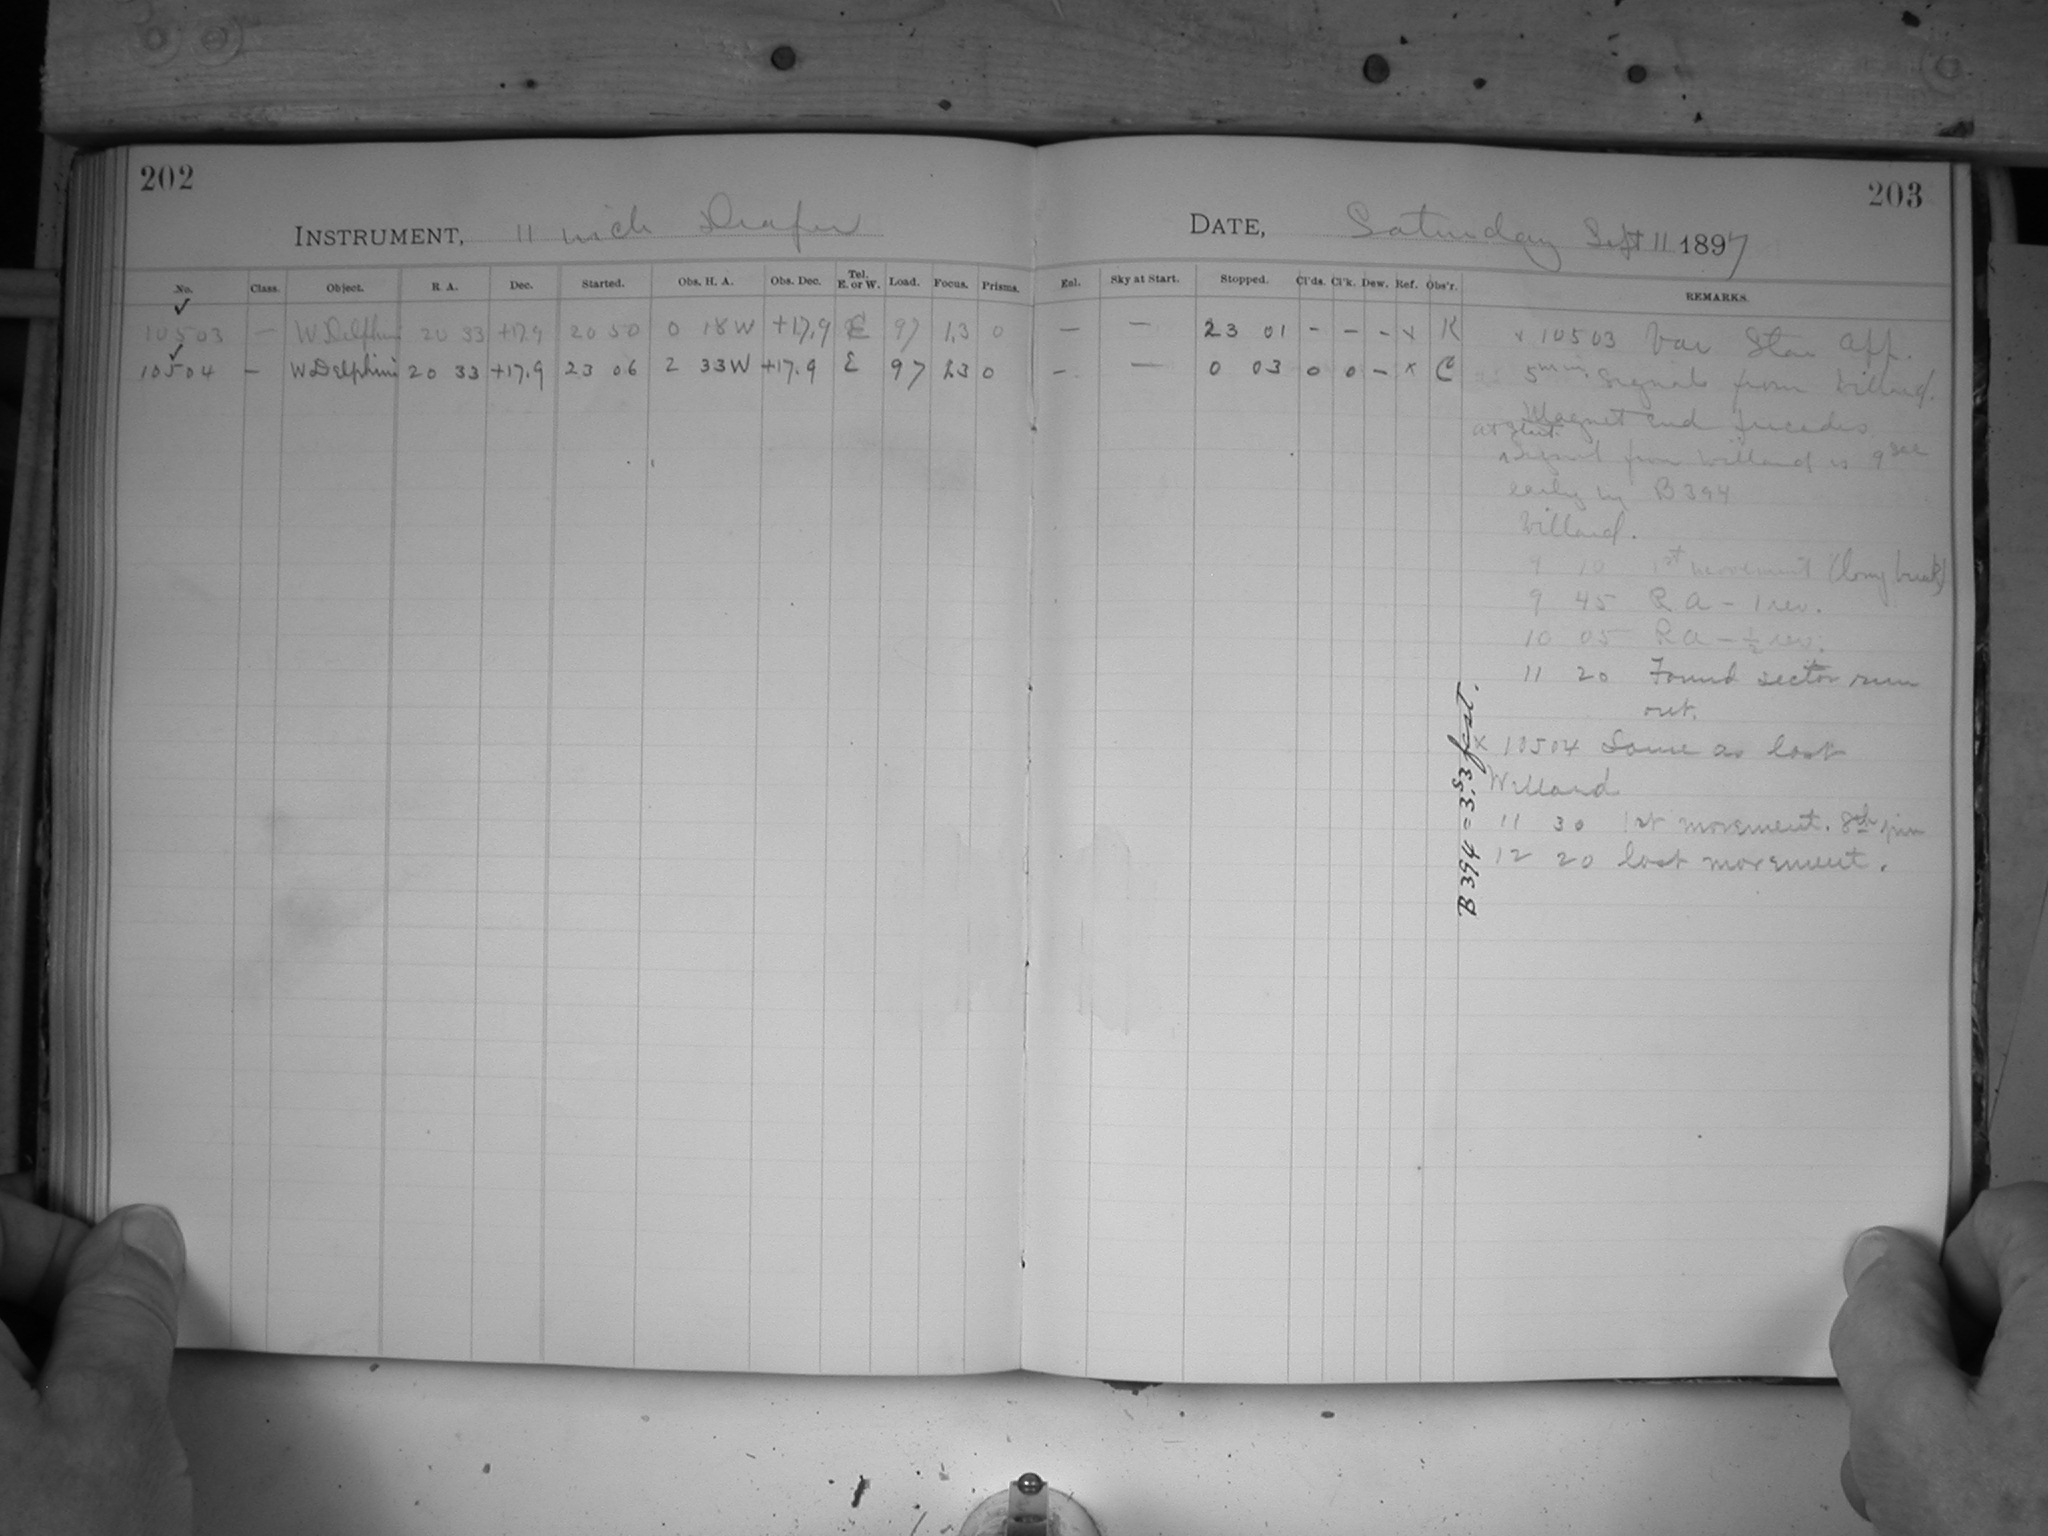 202
203
INSTRUMENT, 11 inch Draper
DATE, Saturday Sept 11 1897
No. Class. Object. R A. Dec. Started. Obs. H. A. Obs. Dec. Tel. E. or W. Load. Focus. Prisms. Enl. Sky at Start. Stopped. Cl'ds. Cl'k. Dew. Ref. Obs'r. REMARKS.
✓
10503 — W Delphini 20 33 +17.9 20 50 0 18 W +17.9 E 97 1.3 0 — — 23 01 - - - x K
✓
10504 — W Delphini 20 33 +17.9 23 06 2 33 W +17.9 E 97 1.3 0 — — 0 03 0 0 - x C
x 10503 Var Star App.
5 min. signals from Willard.
Magnet end precedes
at start.
signal from Willard is 9 sec
early by B 394
Willard.
9 10 1st movement (long break)
9 45 R A - 1 rev.
10 05 R A - ½ rev.
11 20 Found sector run
out.
x 10504 Same as last
Willard
11 30 1st movement. 8th pin
12 20 last movement.
B 394 = 3.53 fast.